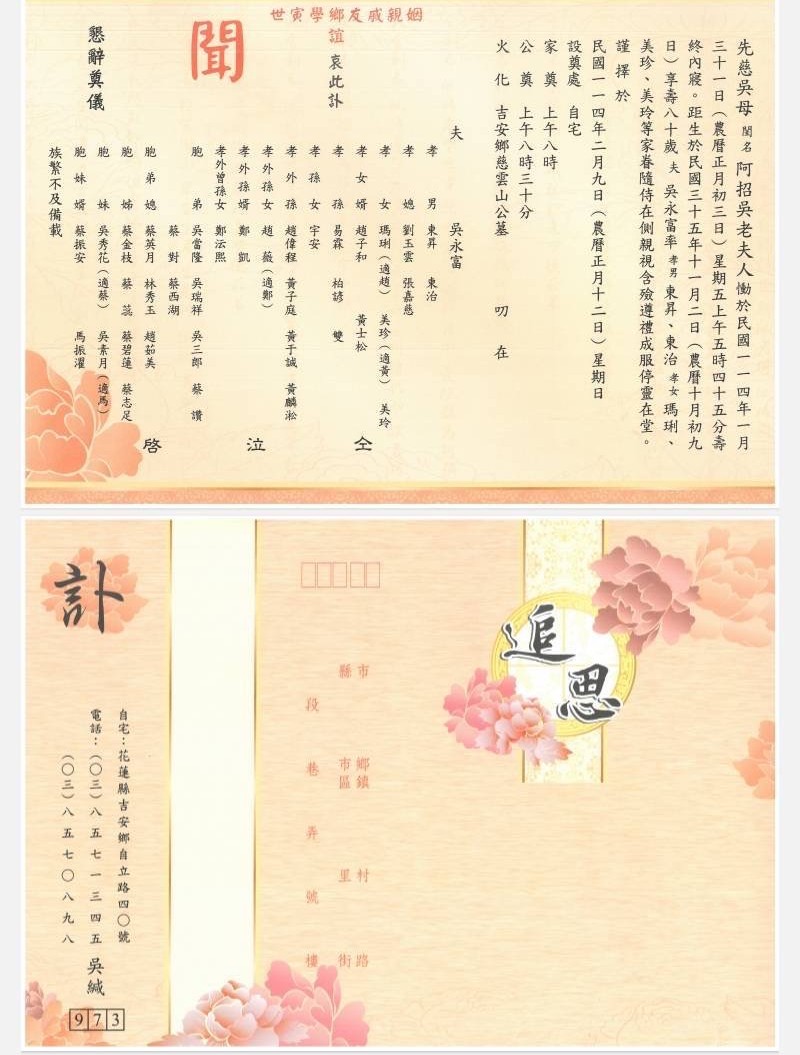 先慈吳母 閨名 阿招吳老夫人慟於民國一一四年一月
三十一日（農曆正月初三日）星期五上午五時四十五分壽
終內寢。距生於民國三十五年十一月二日（農曆十月初九
日）享壽八十歲 夫 吳永富率 孝男 東昇、東治 孝女 瑪琍、
美珍、美玲等家眷隨侍在側親視含殮遵禮成服停靈在堂。
謹擇於
民國一一四年二月九日（農曆正月十二日）星期日
設奠處 自宅
家奠 上午八時
公奠 上午八時三十分
火化 吉安鄉慈雲山公墓 叨在
姻親戚友鄉學寅世
誼 哀此訃
聞
懇辭奠儀
夫 吳永富
孝男 東昇 東治
孝媳 劉玉雲 張嘉慈
孝女 瑪琍（適趙） 美珍（適黃） 美玲
孝女婿 趙子和 黃士松
孝孫 易霖 柏諺 雙
孝孫女 宇安
孝外孫 趙偉程 黃子庭 黃于誠 黃麟淞
孝外孫女 趙薇（適鄭）
孝外孫婿 鄭凱
孝外曾孫女 鄭沄熙
胞弟 吳當隆 吳瑞祥 吳三郎 蔡讚
蔡對 蔡西湖
胞弟媳 蔡英月 林秀玉 趙茹美
胞姊 蔡金枝 蔡蕊 蔡碧蓮 蔡志足
胞妹 吳秀花（適蔡） 吳素月（適馬）
胞妹婿 蔡振安 馬振濯
族繁不及備載
仝泣啓
追思
市縣
鄉鎮市區
村里
路街
段
巷
弄
號
樓
訃
自宅：花蓮縣吉安鄉自立路四〇號
電話：（〇三）八五七一三四五
（〇三）八五七〇八九八
吳緘
973